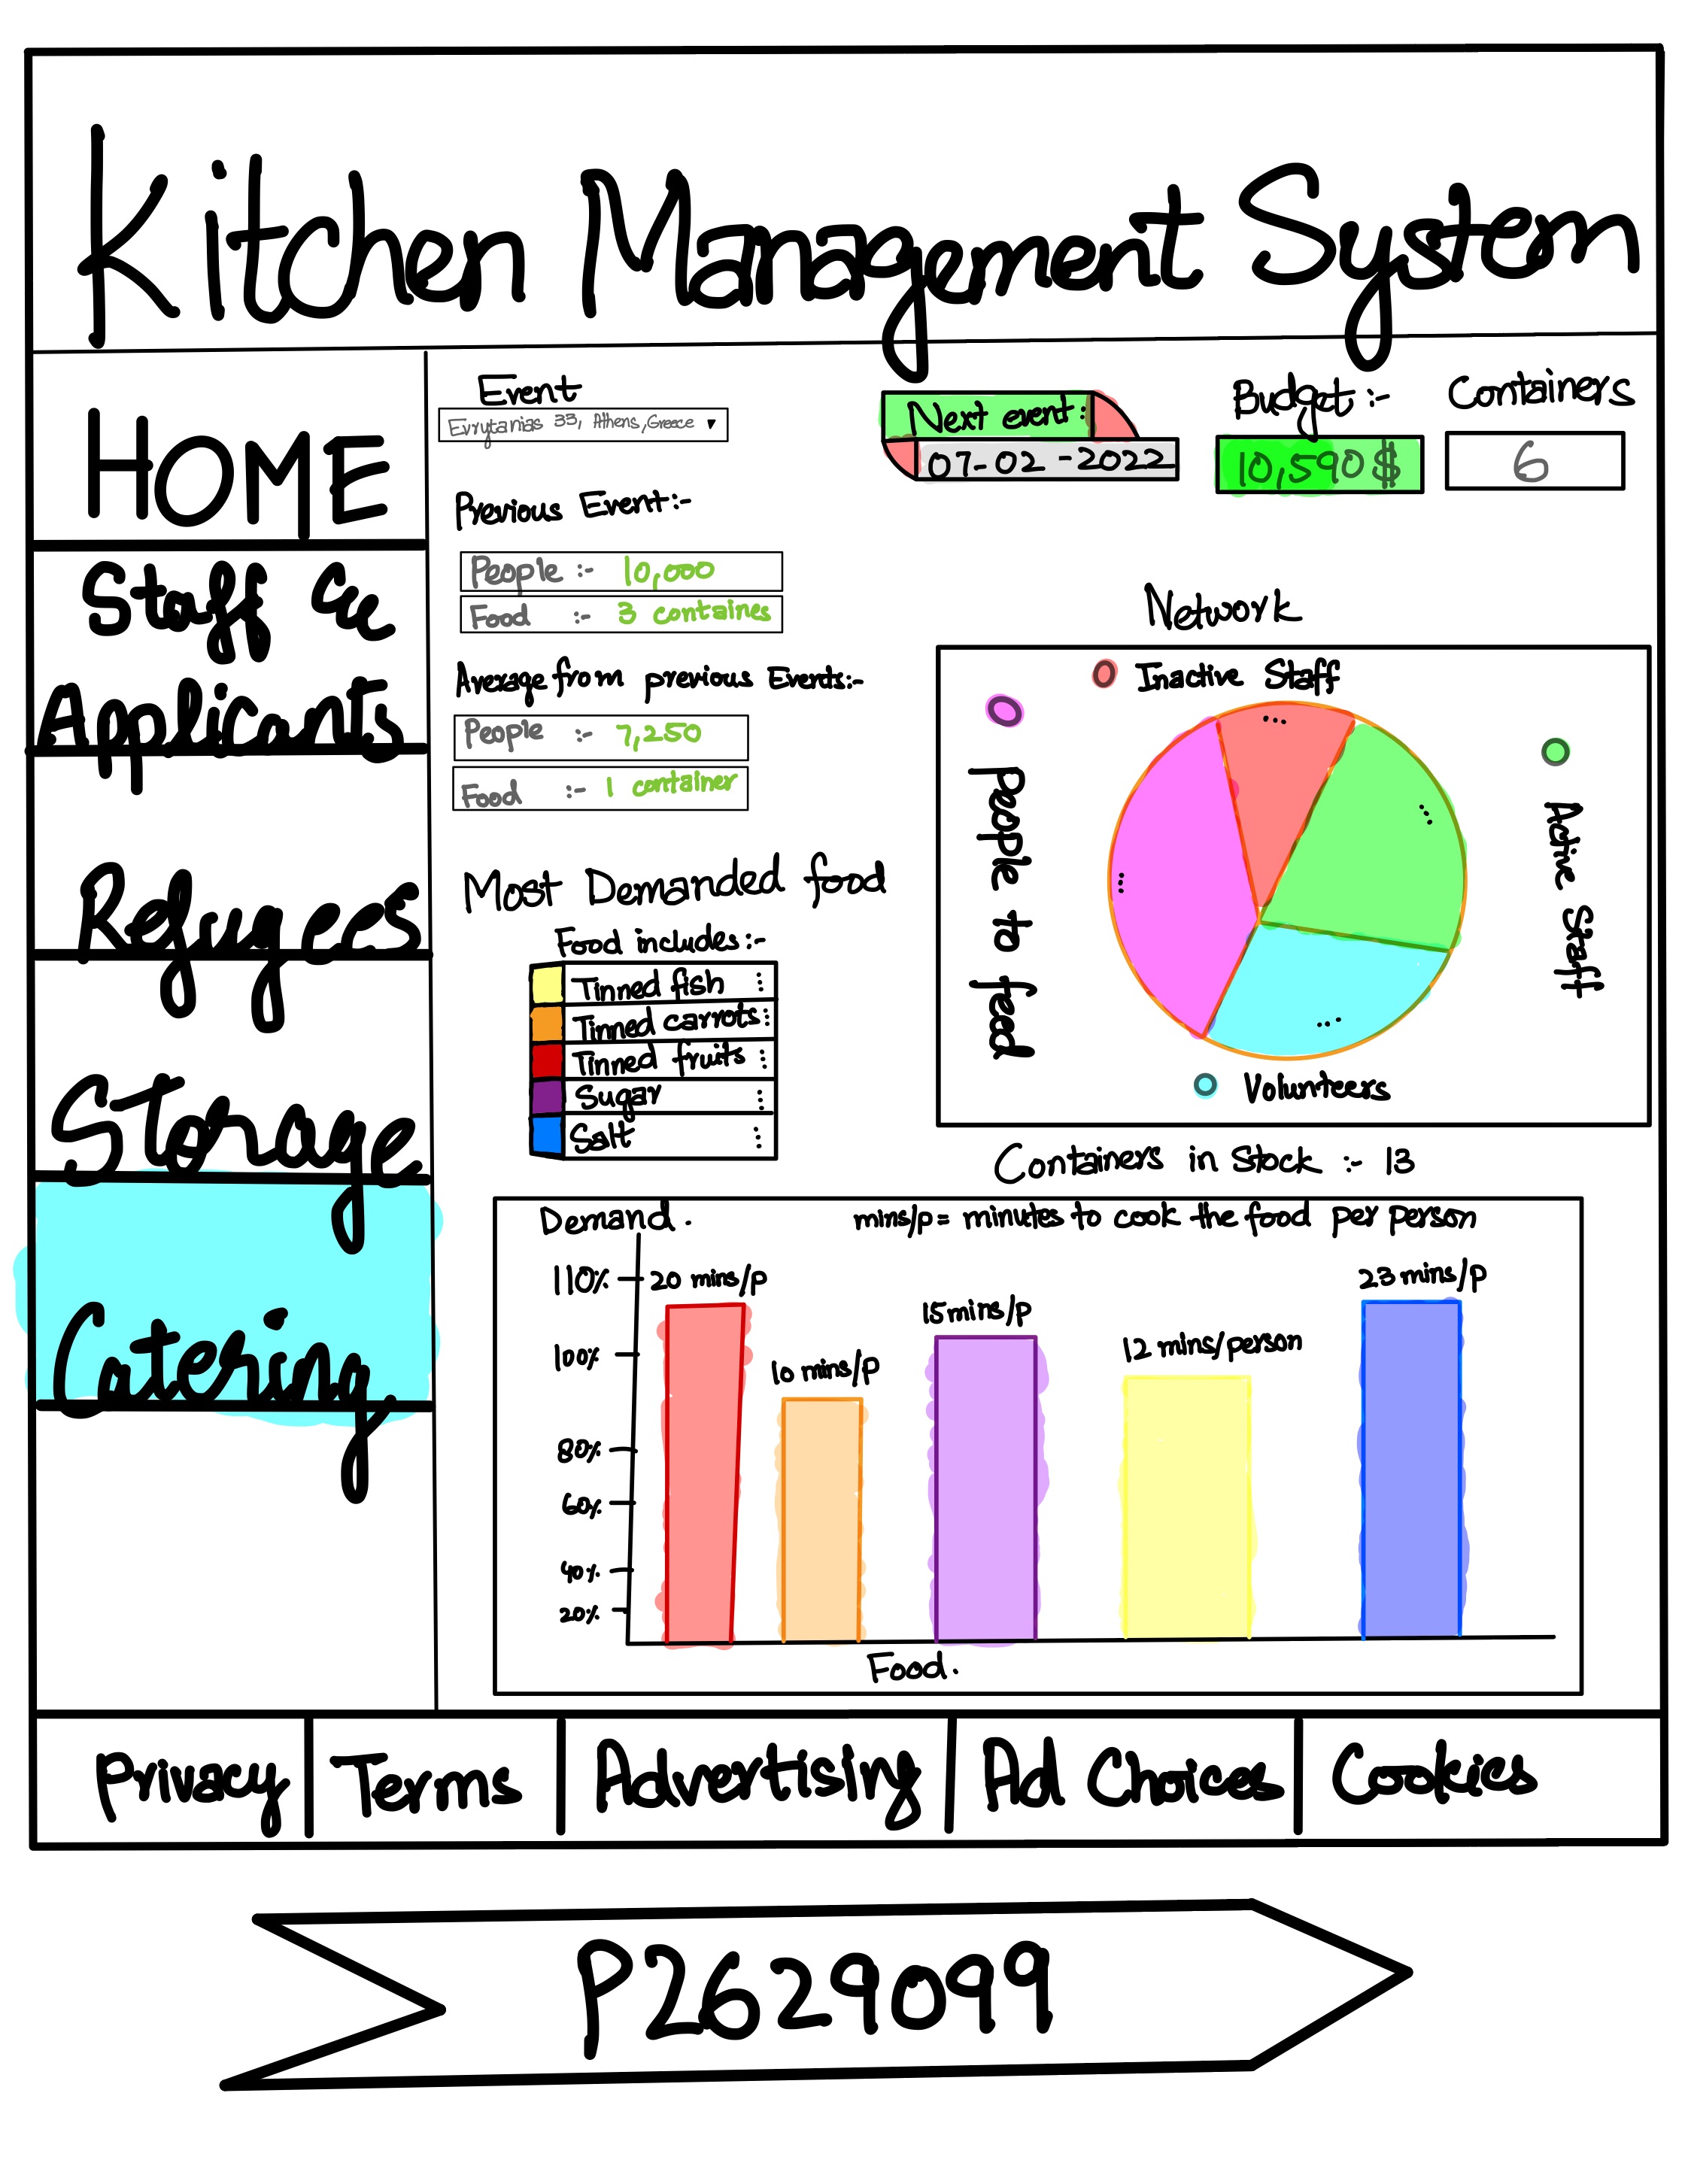 Kitchen Management System
HOME
Staff &
Applicants
Refugees
Storage
Catering
Event
Evrytanias 33, Athens, Greece ▾
Next event:
07-02-2022
Budget:-
10,590$
Containers
6
Previous Event:-
People :- 10,000
Food :- 3 containes
Average from previous Events:-
People :- 7,250
Food :- 1 container
Most Demanded food
Food includes:-
Tinned fish
Tinned carrots
Tinned fruits
Sugar
Salt
Network
Inactive Staff
People to feed
Active Staff
Volunteers
Containers in Stock :- 13
Demand.
mins/p = minutes to cook the food per person
110%
100%
80%
60%
40%
20%
20 mins/p
10 mins/p
15mins/p
12 mins/person
23 mins/p
Food.
Privacy
Terms
Advertising
Ad Choices
Cookies
P2629099